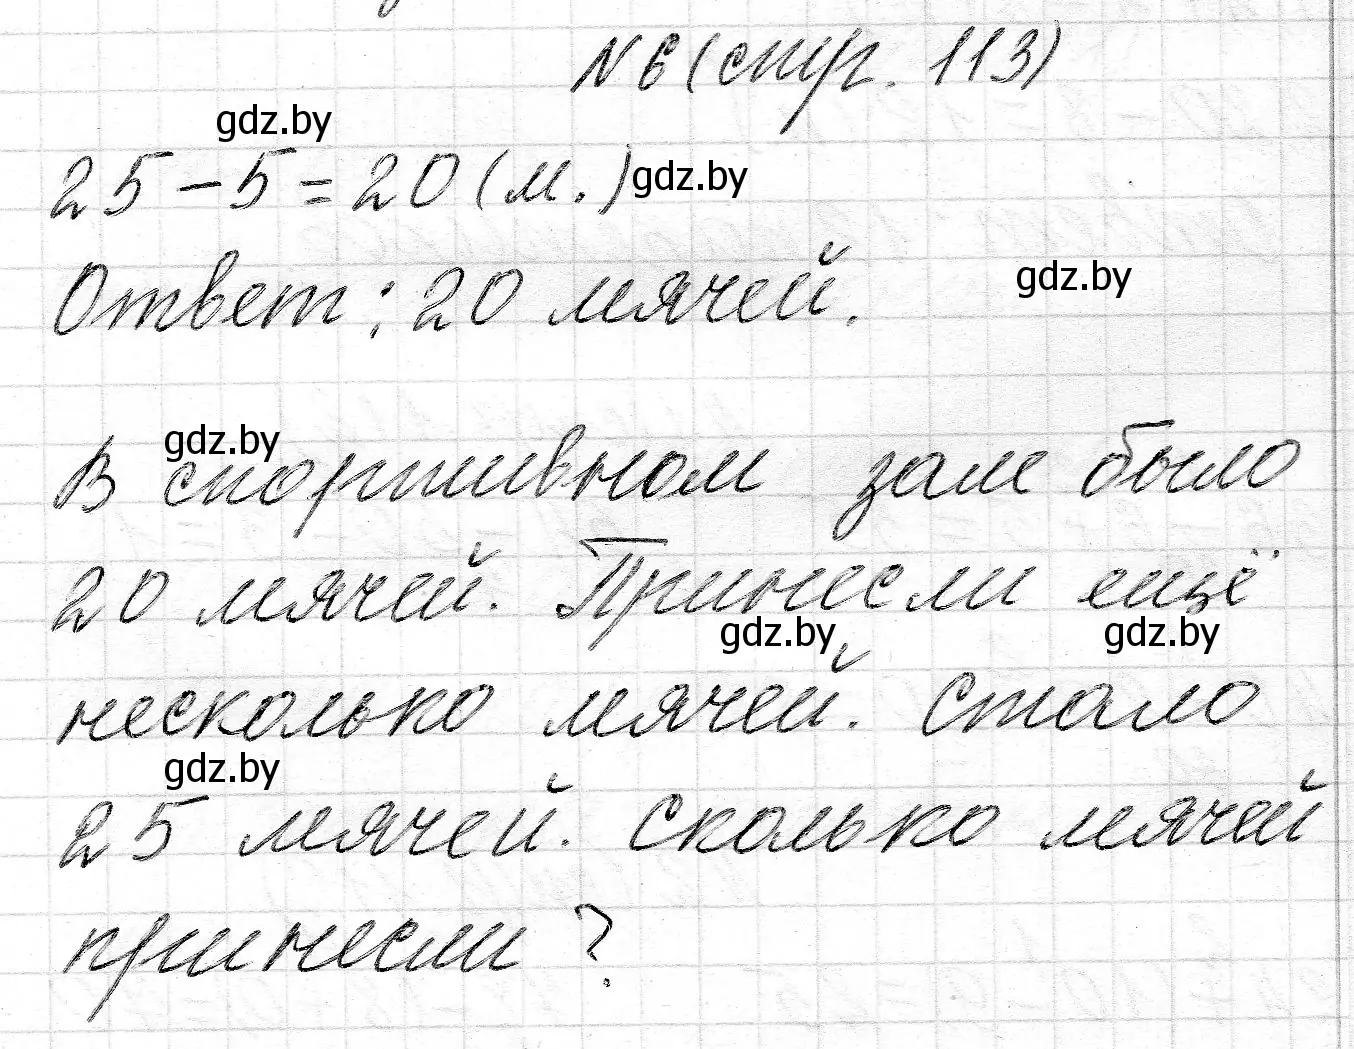 N 6 (стр. 113)
gdz.by
25-5=20 (м.) gdz.by
Ответ: 20 мячей.
gdz.by
gdz.by
В спортивном зале было
20 мячей. Принесли ещё
gdz.by gdz.by
несколько мячей. Стало
gdz.by
25 мячей. Сколько мячей
принесли?